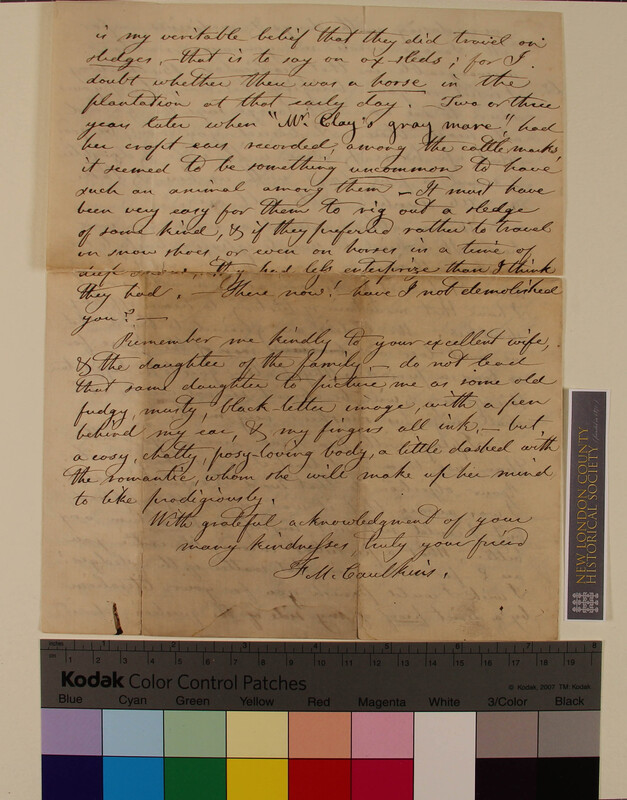 is my veritable belief that they did travel on
sledges, that is to say on ox-sleds; for I
doubt whether there was a horse in the
plantation at that early day. – Two or three
years later when "Mr. Clay's gray mare", had
her cropt ears recorded, among the cattle marks,
it seemed to be something uncommon to have
such an animal among them – It must have
been very easy for them to rig out a sledge
of some kind, & if they preferred rather to travel
on snow shoes, or even on horses in a time of
deep snows, they had less enterprize than I think
they had. – There now! have I not demolished
you? –
Remember me kindly to your excellent wife,
& the daughter of the family, – do not lead
that same daughter to picture me as some old
fudgy, musty, black-letter image, with a pen
behind my ear, & my fingers all ink, – but,
a cosy, chatty, posy-loving body, a little dashed with
the romantic, whom she will make up her mind
to like prodigiously.
With grateful acknowledgment of your
many kindnesses truly your friend
F. M. Caulkins.
NEW LONDON COUNTY
HISTORICAL SOCIETY
inches 1 2 3 4 5 6 7 8
cm 1 2 3 4 5 6 7 8 9 10 11 12 13 14 15 16 17 18 19
Kodak Color Control Patches
© Kodak, 2001 TM: Kodak
Blue Cyan Green Yellow Red Magenta White 3/Color Black